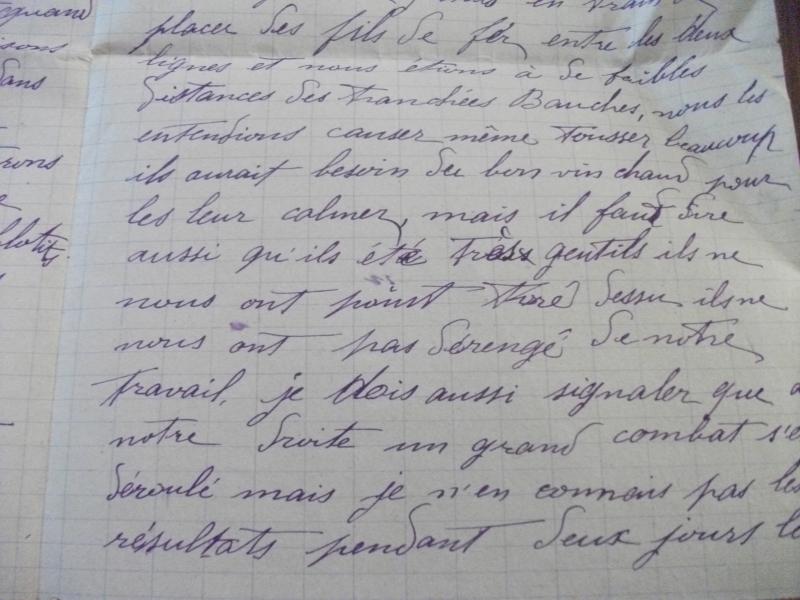 placer des fils de fer entre les deux
lignes et nous étions à de faibles
distances des tranchées Bauches, nous les
entendions causer même tousser beaucoup
ils aurait besoin du bon vin chaud pour
les leur calmer, mais il faut dire
aussi qu'ils été très gentils ils ne
nous ont point tiré dessu ils ne
nous ont pas dérengé de notre
travail, je dois aussi signaler que a
notre droite un grand combat s'e
déroulé mais je n'en connais pas les
résultats pendant deux jours le